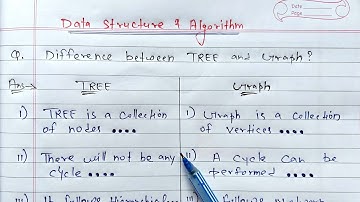 Date
Page
Data Structure & Algorithm
Q. Difference between TREE and Graph?
Ans→ TREE Graph
I) TREE is a collection of nodes ....
I) Graph is a collection of vertices ....
II) There will not be any cycle ....
II) A cycle can be performed ....
III) It follows
III) It follows